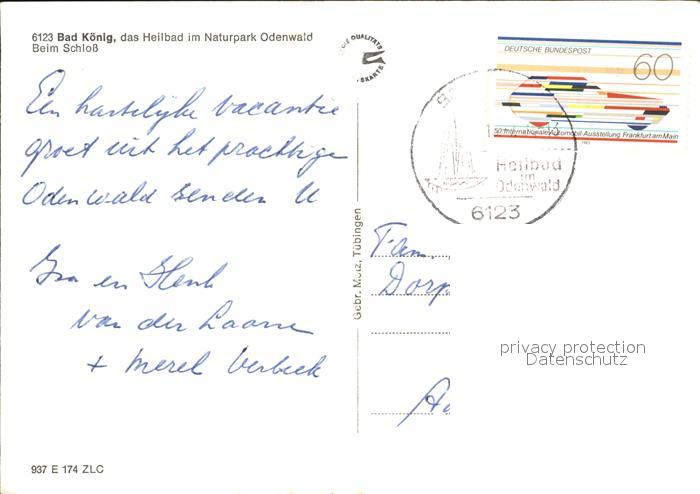 6123 Bad König, das Heilbad im Naturpark Odenwald
Beim Schloß
QUALITÄTS
SKARTE
DEUTSCHE BUNDESPOST
60
50. Internationale Automobil-Ausstellung Frankfurt am Main
1983
Heilbad
im
Odenwald
6123
Een hartelijke vacantie
groet uit het prachtige
Odenwald zenden U
en Henk
van der Laane
+ Merel Verbeek
Gebr. Metz, Tübingen
Fam.
Dorp
privacy protection
Datenschutz
937 E 174 ZLC